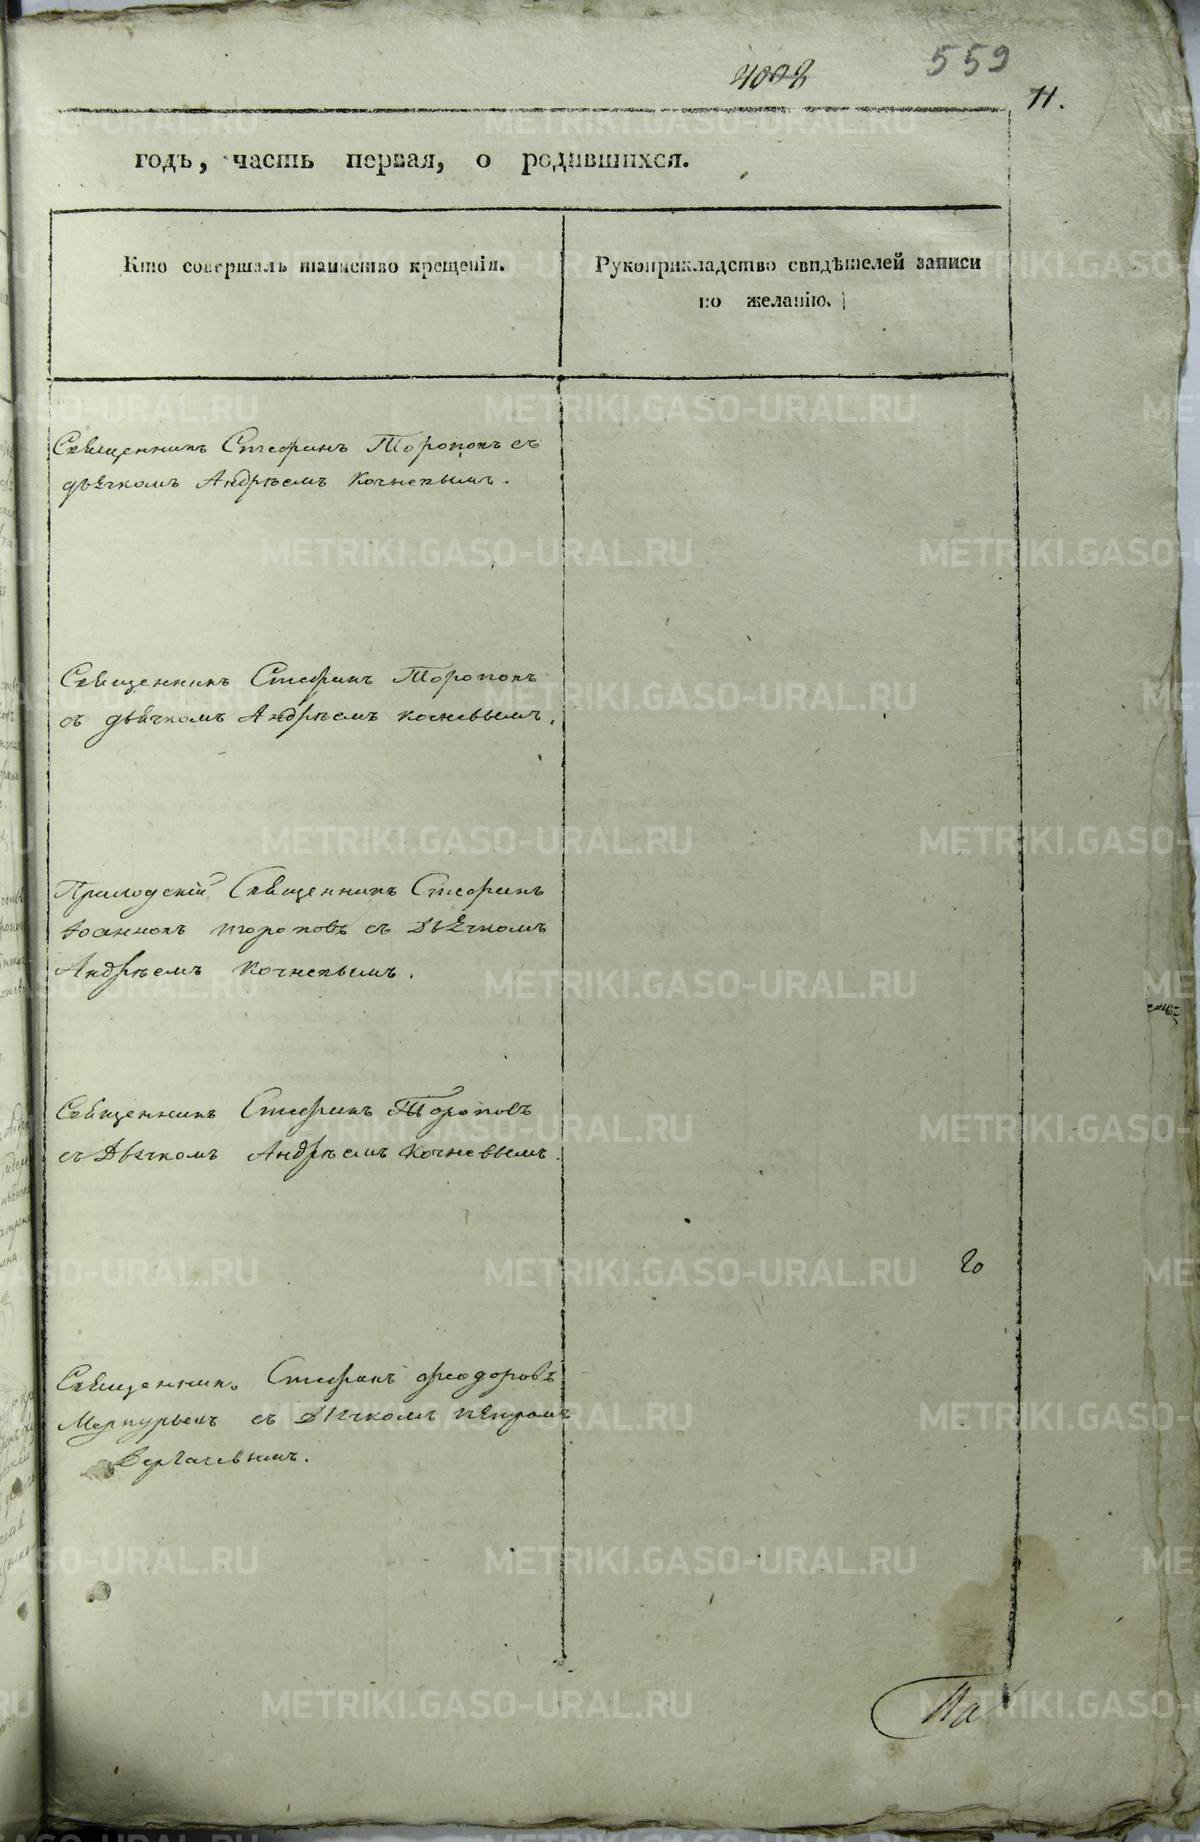 559
4008
11.
годъ, часть первая, о родившихся.
Кто совершалъ таинство крещенія.
Рукоприкладство свидѣтелей записи
по желанію.
Священникъ Стефанъ Тороповъ съ
дьячкомъ Андрѣемъ Кочневымъ.
Священникъ Стефанъ Тороповъ
съ дьячкомъ Андрѣемъ Кочневымъ.
Приходскій Священникъ Стефанъ
Іоанновъ Тороповъ съ Дьячкомъ
Андрѣемъ Кочневымъ.
Священникъ Стефанъ Тороповъ
съ Дьячкомъ Андрѣемъ Кочневымъ.
го
Священникъ Стефанъ Феодоровъ
Меркурьевъ съ Дьячкомъ Петромъ
METRIKI.GASO-URAL.RU